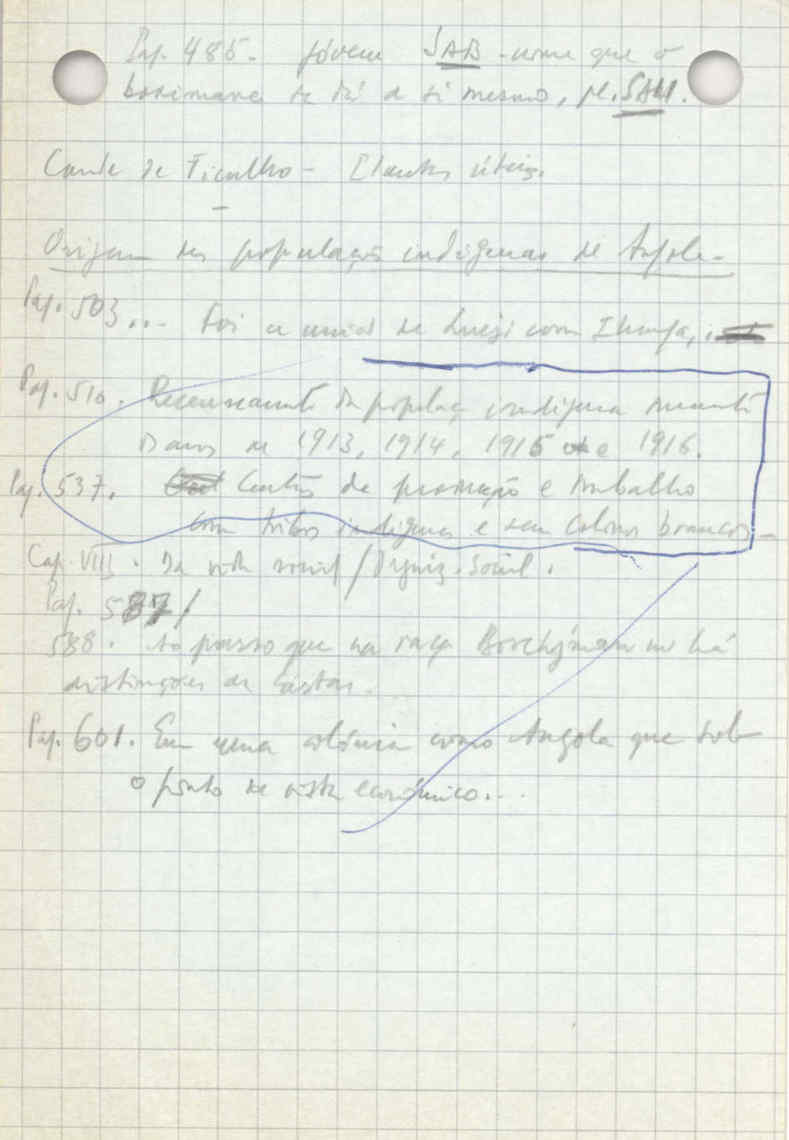 Pag. 485. Jóvem SAB - nome que o
boximane se dá a si mesmo, pl. SAN.
Conde de Ficalho - Plantas úteis.
Origem das populações indígenas de Angola -
Pag. 503... Foi a união de Lueji com Ilunga,
Pag. 510. Recenseamento da população indígena durante
o anos de 1913, 1914, 1915 e 1916.
Pag. 537. Centros de produção e trabalho
com tribos indígenas e seus colonos brancos -
Cap. VIII. Da vida social / Organiz. Social.
Pag. 587/
588. Ao passo que na raça não há
distinções de castas.
Pag. 601. Em uma colónia como Angola que sob
o ponto de vista económico...